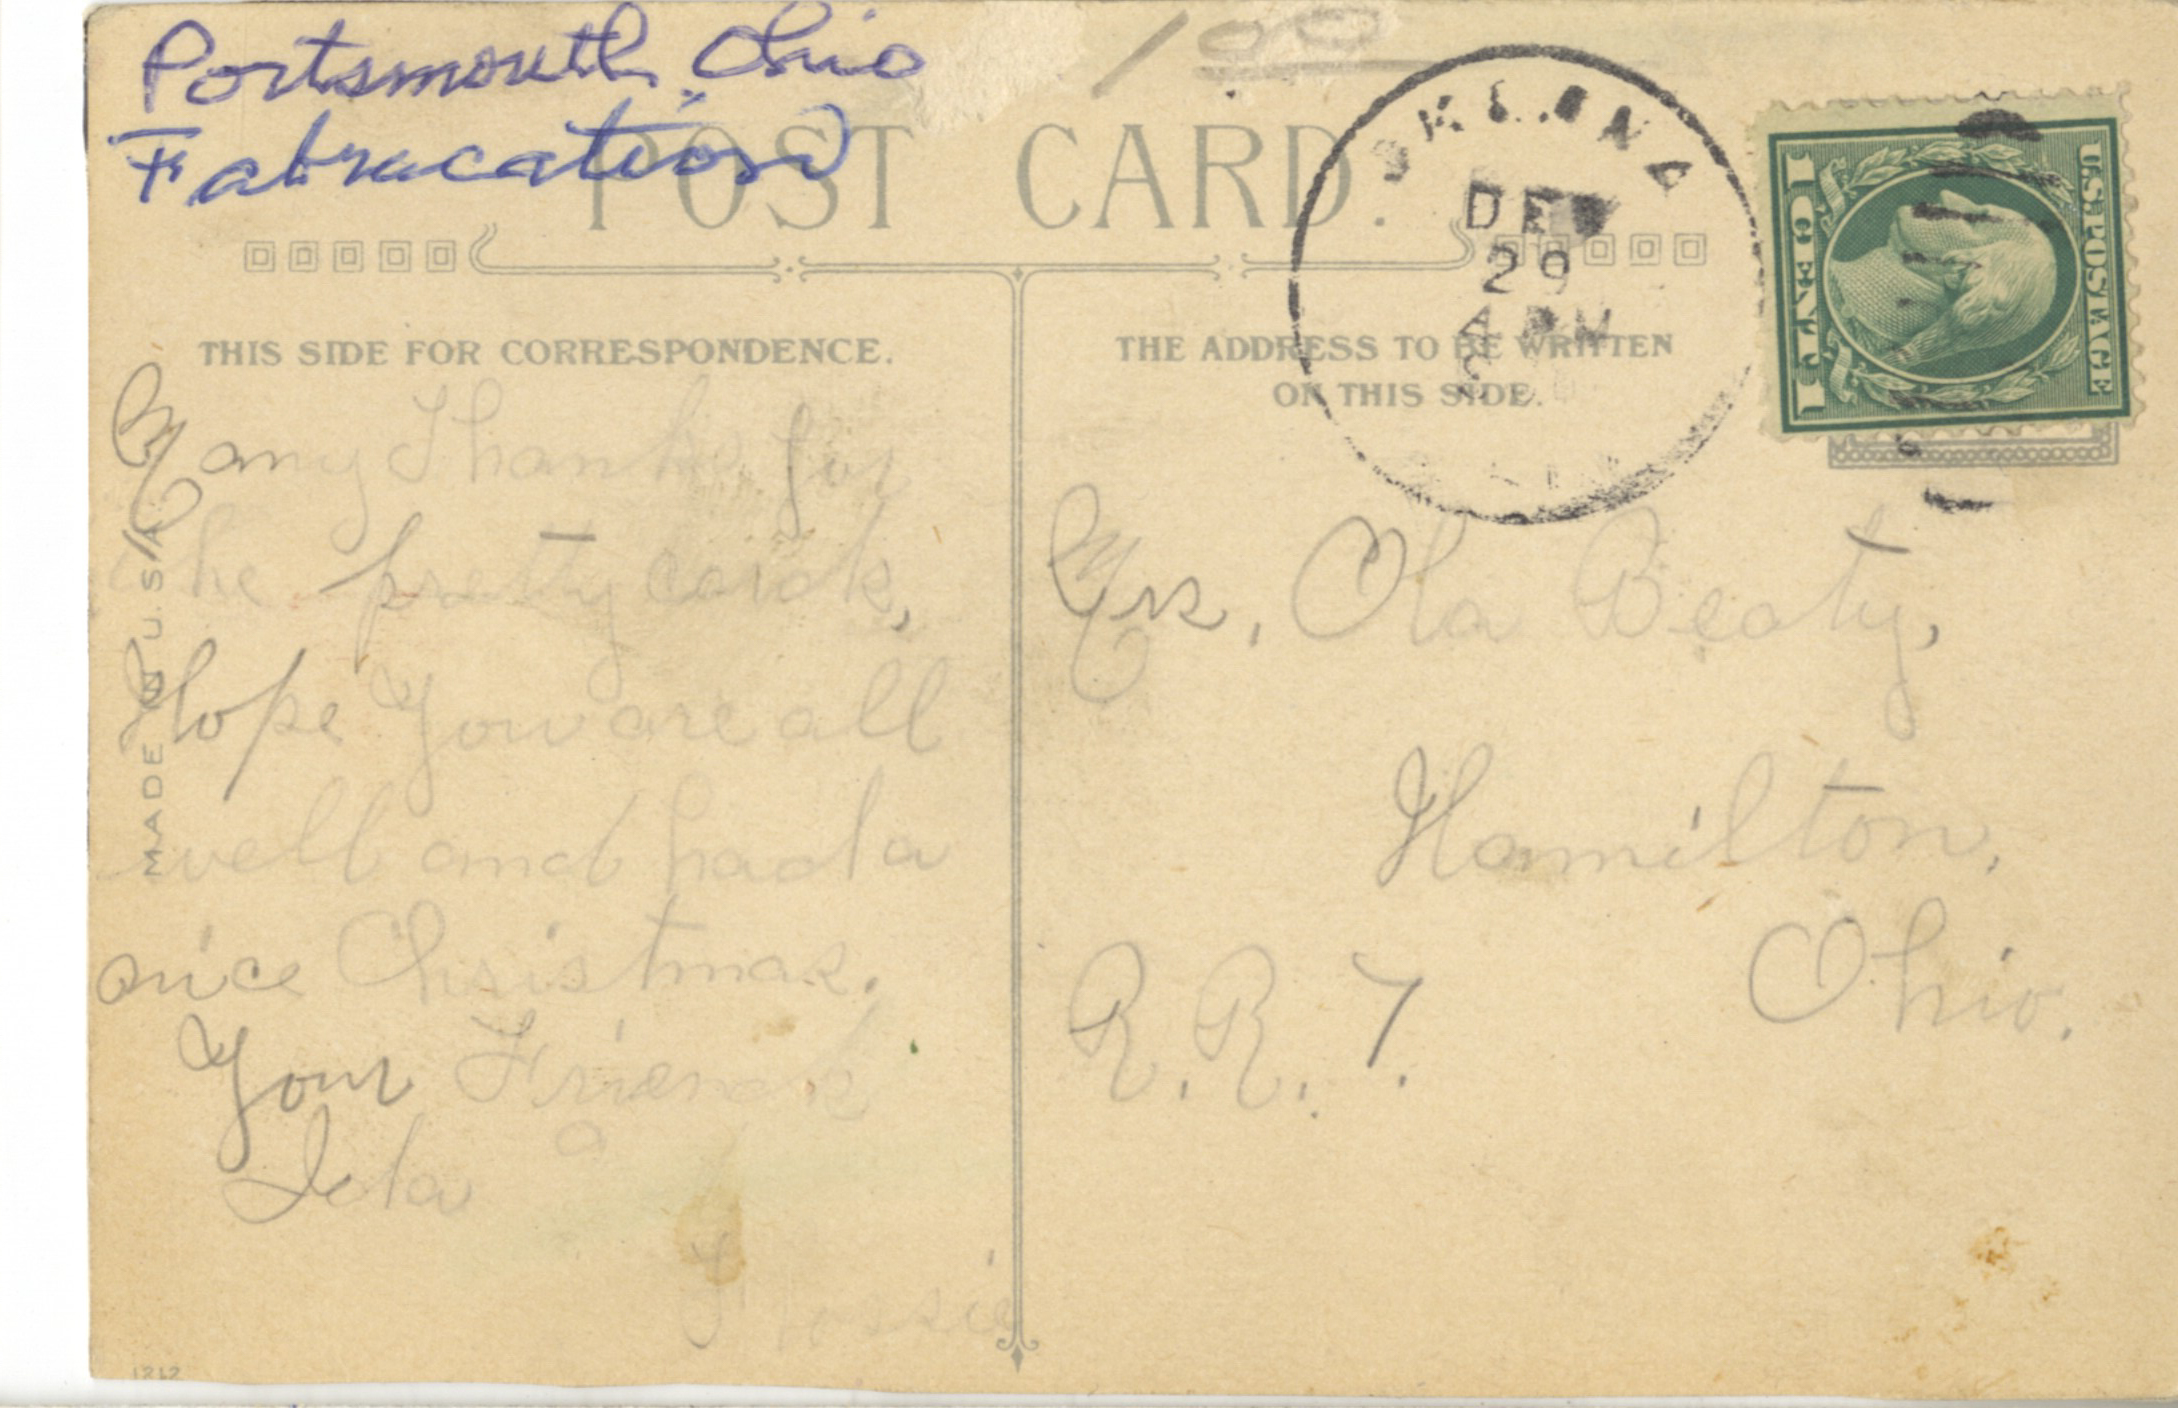 Portsmouth, Ohio
Fabracation
/00
POST CARD.
THIS SIDE FOR CORRESPONDENCE.
Many Thanks for
the pretty card,
Hope You are all
well and had a
nice Christmas.
Your Friend
Ida
Flossie
MADE IN U.S.A.
1212
THE ADDRESS TO BE WRITTEN
ON THIS SIDE.
DEC
29
A M
U.S. POSTAGE
1 CENT 1
Mrs, Ola Beaty,
Hamilton,
Ohio.
R.R. 7.